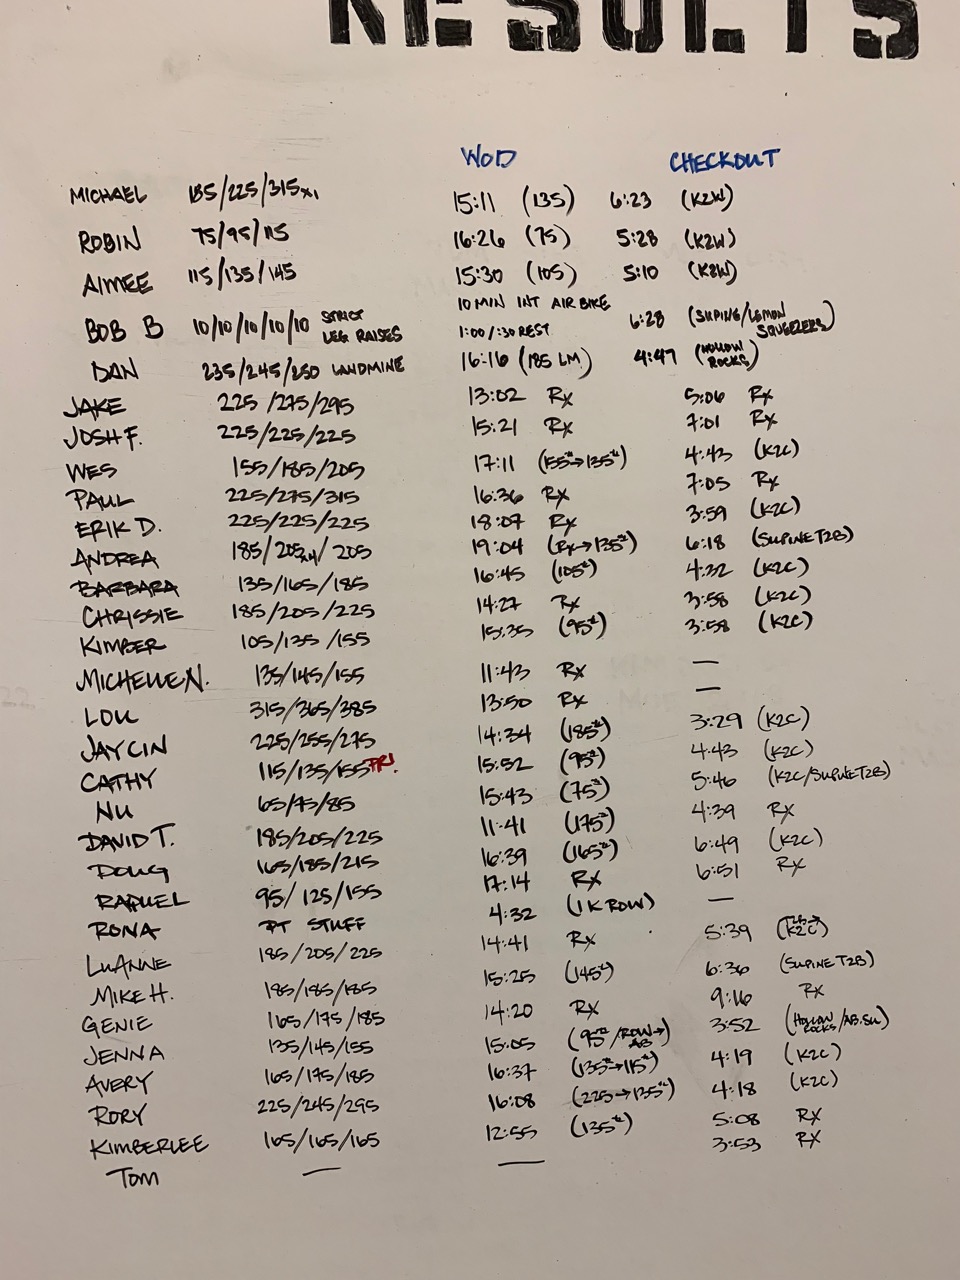 RESULTS
WOD CHECKOUT
MICHAEL 185/225/315x1 15:11 (135) 6:23 (K2W)
ROBIN 75/95/115 16:26 (75) 5:28 (K2W)
AIMEE 115/135/145 15:30 (105) 5:10 (K2W)
BOB B 10/10/10/10/10 STRICT LEG RAISES 10 MIN INT AIR BIKE 1:00/:30 REST 6:28 (SUPINE/LEMON SQUEEZERS)
DAN 235/245/250 LANDMINE 16:16 (185 LM) 4:47 (HOLLOW ROCKS)
JAKE 225/275/295 13:02 Rx 5:06 Rx
JOSH F. 225/225/225 15:21 Rx 7:01 Rx
WES 155/185/205 17:11 (155#→135#) 4:43 (K2C)
PAUL 225/275/315 16:36 Rx 7:05 Rx
ERIK D. 225/225/225 18:07 Rx 3:59 (K2C)
ANDREA 185/205x4/205 19:04 (Rx→135#) 6:18 (SUPINE T2B)
BARBARA 135/165/185 16:45 (105#) 4:32 (K2C)
CHRISSIE 185/205/225 14:27 Rx 3:58 (K2C)
KIMBER 105/135/155 15:35 (95#) 3:58 (K2C)
MICHELLE N. 135/145/155 11:43 Rx —
LOU 315/365/385 13:50 Rx —
JAYCIN 225/255/275 14:34 (185#) 3:29 (K2C)
CATHY 115/135/155 PR! 15:52 (95#) 4:43 (K2C)
NU 65/75/85 15:43 (75#) 5:46 (K2C/SUPINE T2B)
DAVID T. 185/205/225 11:41 (175#) 4:39 Rx
DOUG 165/185/215 16:39 (165#) 6:49 (K2C)
RAQUEL 95/125/155 17:14 Rx 6:51 Rx
RONA PT STUFF 4:32 (1K ROW) —
LUANNE 185/205/225 14:41 Rx 5:39 (T2B→K2C)
MIKE H. 185/185/185 15:25 (145#) 6:36 (SUPINE T2B)
GENIE 165/175/185 14:20 Rx 9:16 Rx
JENNA 135/145/155 15:05 (95#/ROW→AB) 3:52 (HOLLOW ROCKS/AB.SU)
AVERY 165/175/185 16:37 (135#→115#) 4:19 (K2C)
RORY 225/245/295 16:08 (225→135#) 4:18 (K2C)
KIMBERLEE 165/165/165 12:55 (135#) 5:08 Rx
TOM — — 3:53 Rx